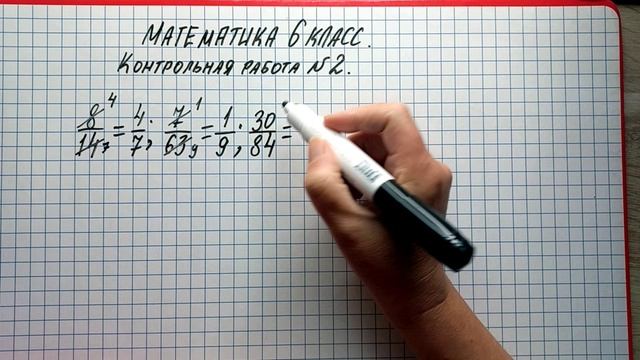 МАТЕМАТИКА 6 КЛАСС.
КОНТРОЛЬНАЯ РАБОТА №2.
8 4 / 14 7 = 4/7; 7 1 / 63 9 = 1/9; 30/84 =